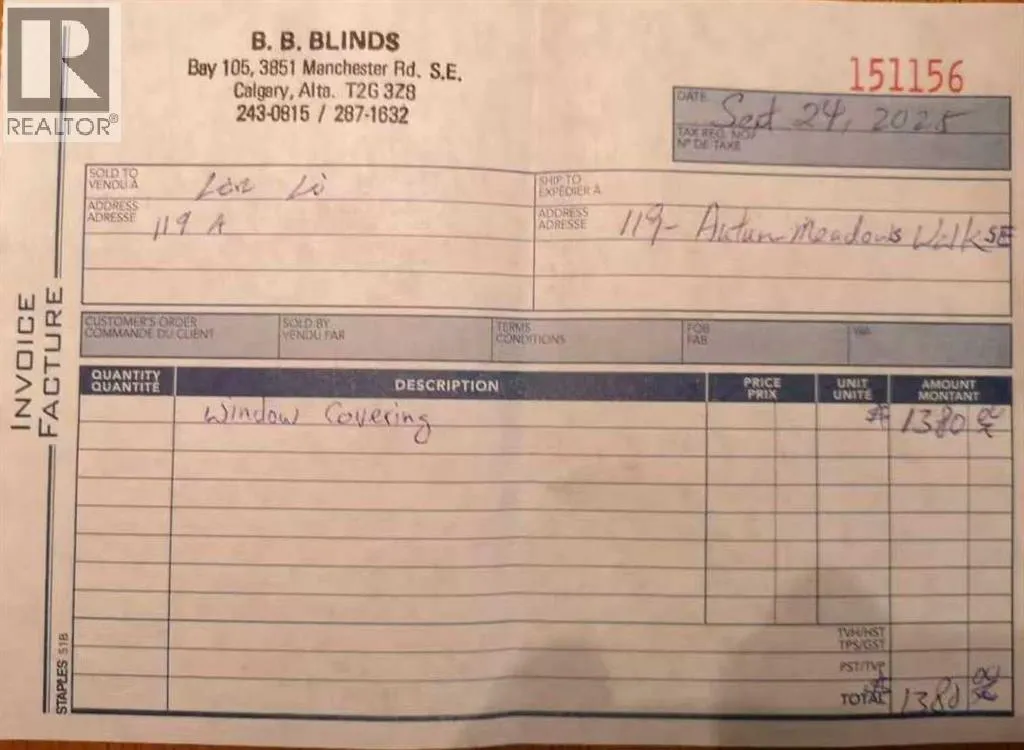 REALTOR®
B. B. BLINDS
Bay 105, 3851 Manchester Rd. S.E.
Calgary, Alta. T2G 3Z8
243-0815 / 287-1632
151156
DATE Sept 24, 2025
TAX REG. NO.
Nº DE TAXE
SOLD TO
VENDU À
Li
ADDRESS
ADRESSE
119 A
SHIP TO
EXPÉDIER À
ADDRESS
ADRESSE
119- Autumn Meadows Walk SE
INVOICE
FACTURE
CUSTOMER'S ORDER
COMMANDE DU CLIENT
SOLD BY
VENDU PAR
TERMS
CONDITIONS
FOB
FAB
VIA
QUANTITY
QUANTITÉ
DESCRIPTION
PRICE
PRIX
UNIT
UNITÉ
AMOUNT
MONTANT
Window Covering
1380
TVH/HST
TPS/GST
PST/TVP
TOTAL 1380
STAPLES 51B